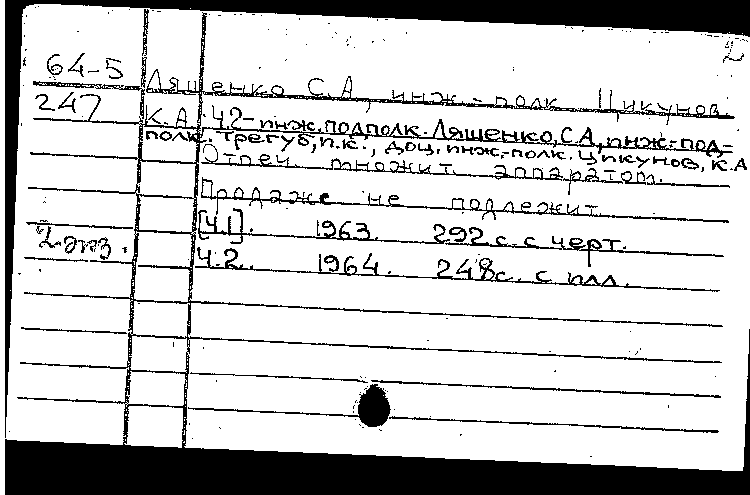 2
64-5 Ляшенко С.А, инж.-полк Цикунов
247 К.А. Ч2-инж.подполк.Ляшенко,С.А,инж.-под-
полк. Трегуб,п.к., доц.инж.-полк.Цикунов,К.А
Отпеч. множит. аппаратом.
Продаже не подлежит
[Ч.1]. 1963. 292 с. с черт.
2 экз.
Ч.2. 1964. 248с. с илл.